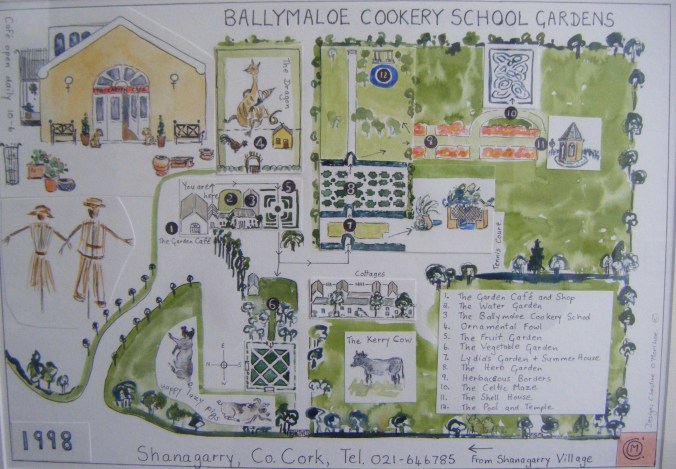 BALLYMALOE COOKERY SCHOOL GARDENS
Cafe open daily 10-6
The Dragon
12
4
10
9
11
You are here
2
3
5
8
1
The Garden Café
7
Tennis Court
Cottages
6
The Kerry Cow
Happy Lazy Pigs
1. The Garden Café and Shop
2. The Water Garden
3. The Ballymaloe Cookery School
4. Ornamental Fowl
5. The Fruit Garden
6. The Vegetable Garden
7. Lydia's Garden + Summer House
8. The Herb Garden
9. Herbaceous Borders
10. The Celtic Maze
11. The Shell House
12. The Pool and Temple
1998
Shanagarry, Co. Cork, Tel. 021-646785
From Shanagarry Village